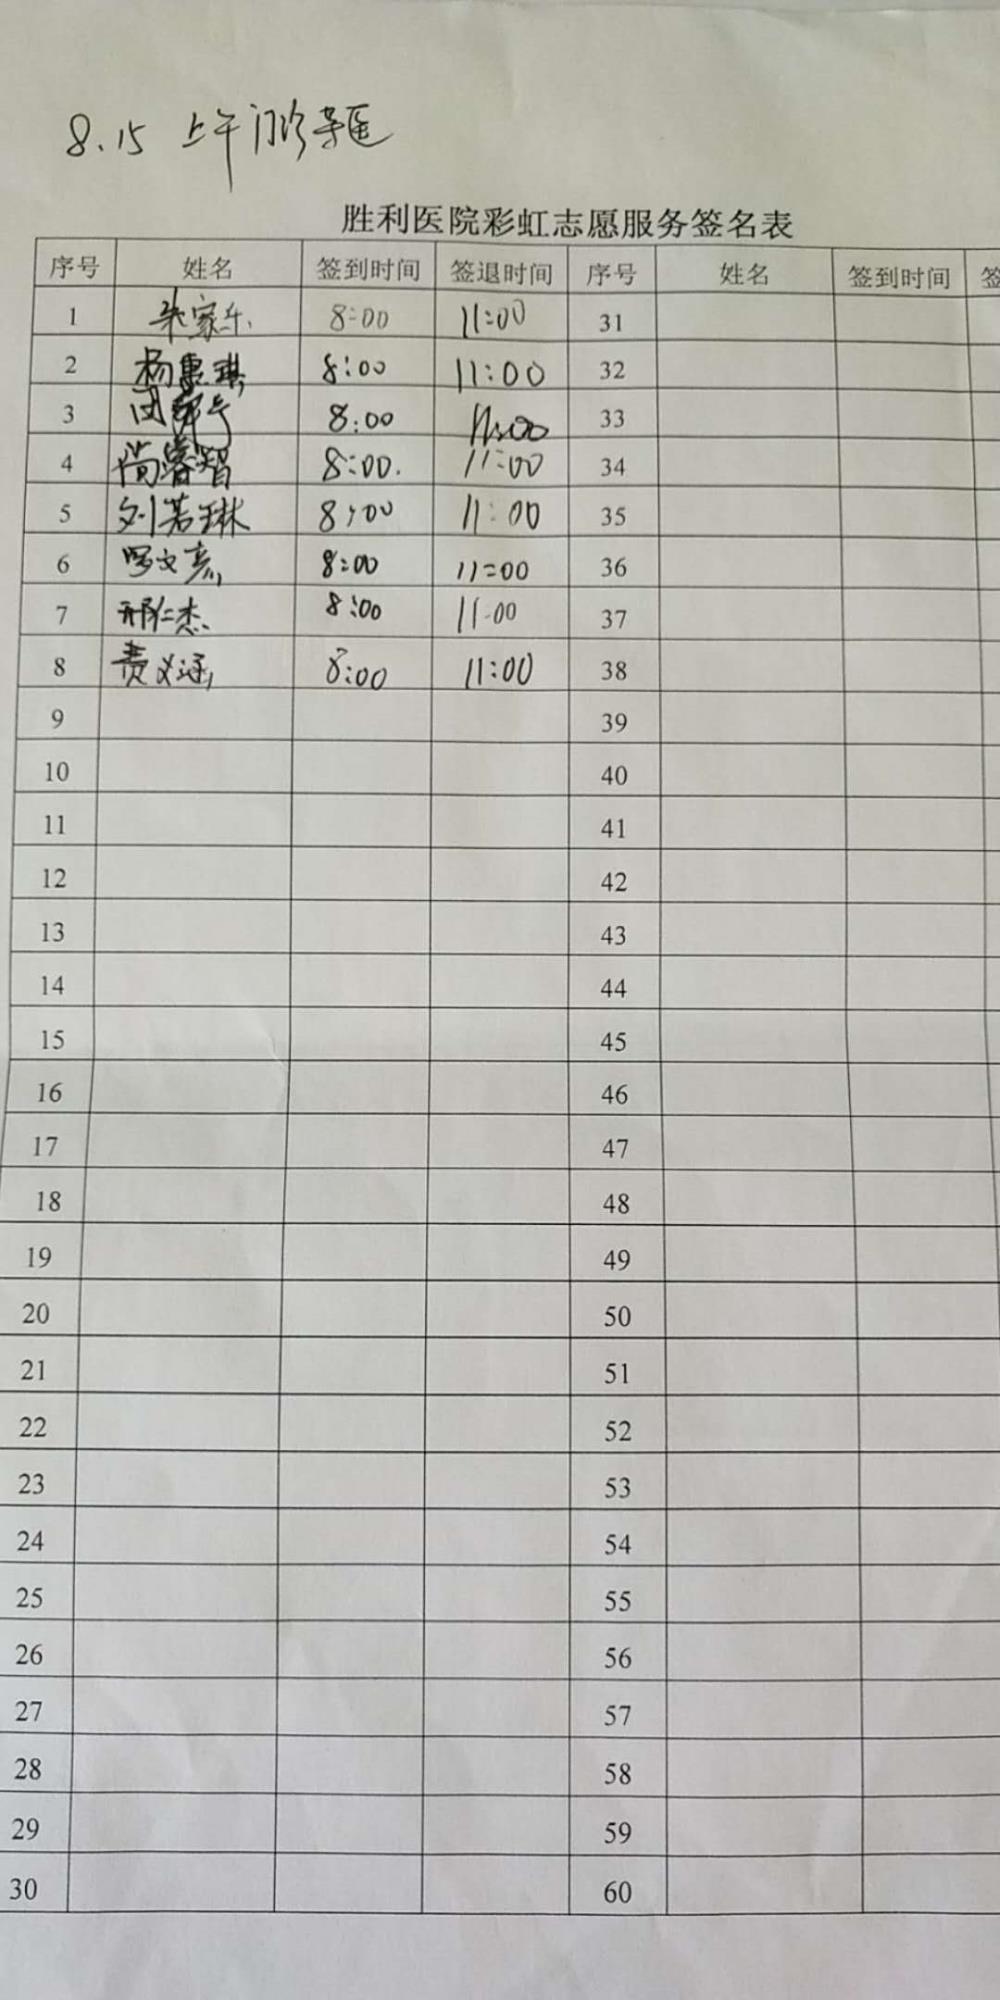 8.15 上午门诊导医
胜利医院彩虹志愿服务签名表
序号 姓名 签到时间 签退时间 序号 姓名 签到时间 签
1 朱家乐 8:00 11:00 31
2 杨惠琪 8:00 11:00 32
3 8:00 11:00 33
4 尚睿智 8:00. 11:00 34
5 刘若琳 8:00 11:00 35
6 罗文亮 8:00 11:00 36
7 邢仁杰 8:00 11:00 37
8 8:00 11:00 38
9 39
10 40
11 41
12 42
13 43
14 44
15 45
16 46
17 47
18 48
19 49
20 50
21 51
22 52
23 53
24 54
25 55
26 56
27 57
28 58
29 59
30 60